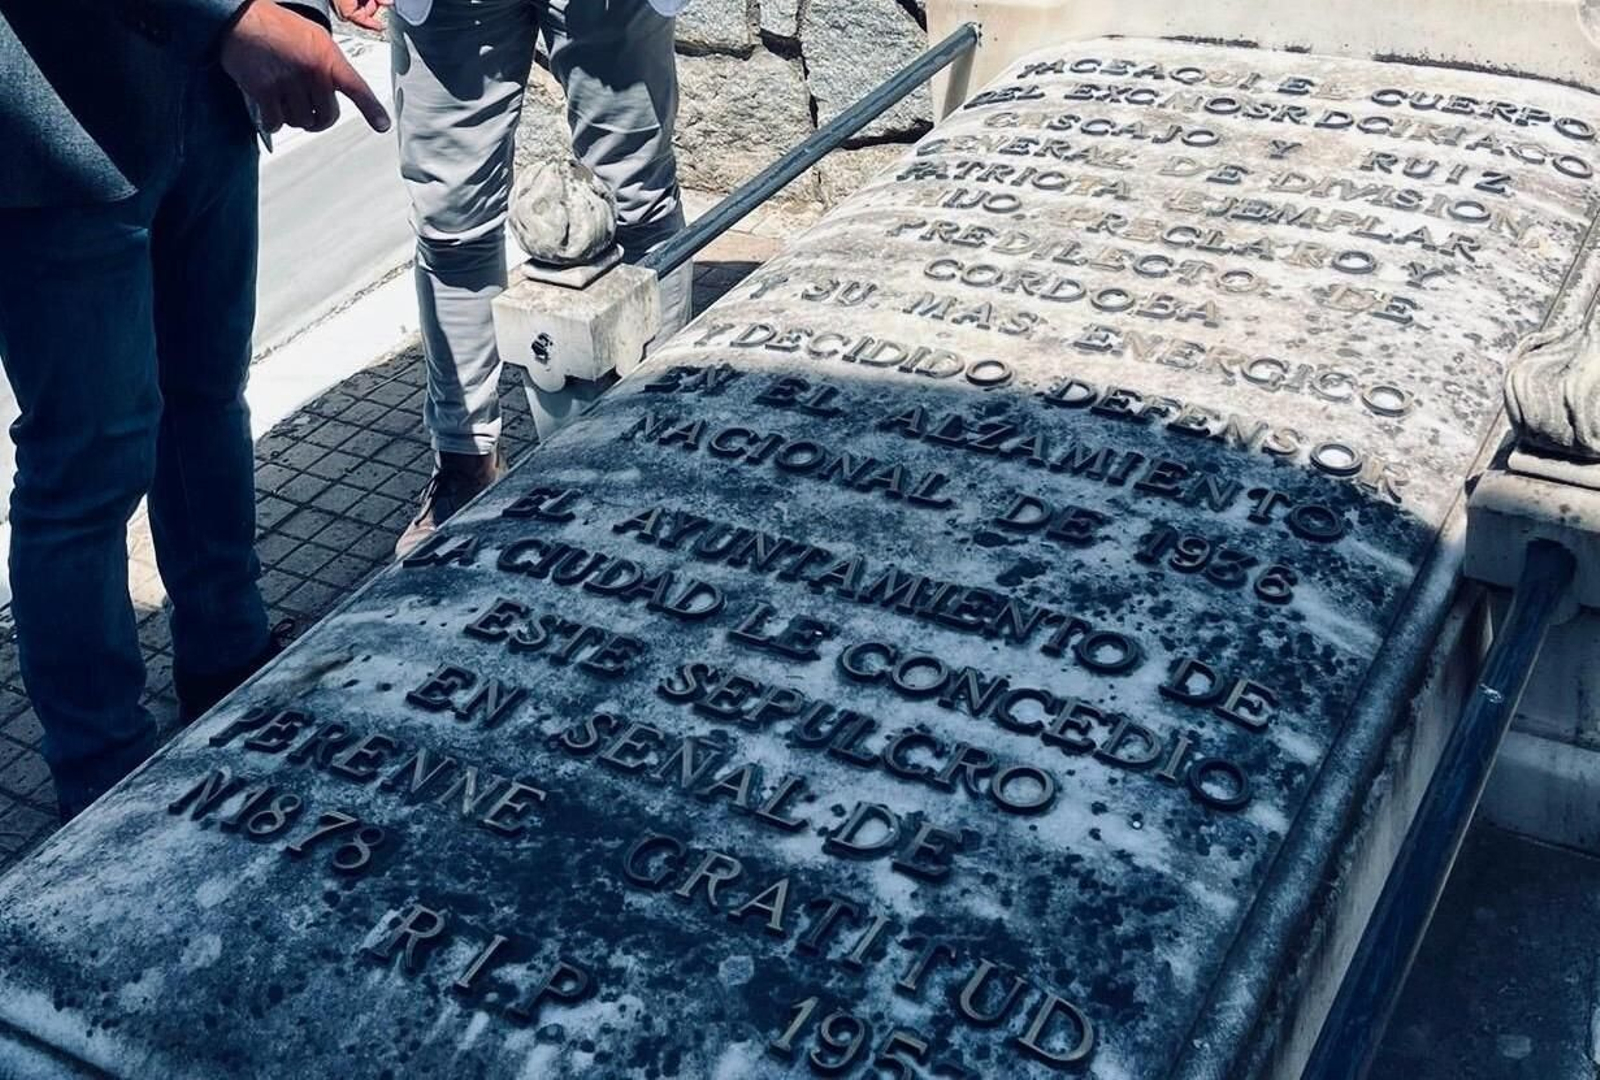 YACE AQUI EL CUERPO
DEL EXCMO SR D CIRIACO
CASCAJO Y RUIZ
GENERAL DE DIVISION
PATRIOTA EJEMPLAR
HIJO PRECLARO Y
PREDILECTO DE
CORDOBA
Y SU MAS ENERGICO
Y DECIDIDO DEFENSOR
EN EL ALZAMIENTO
NACIONAL DE 1936
EL AYUNTAMIENTO DE
LA CIUDAD LE CONCEDIO
ESTE SEPULCRO
EN SEÑAL DE
PERENNE GRATITUD
N 1878
R I P